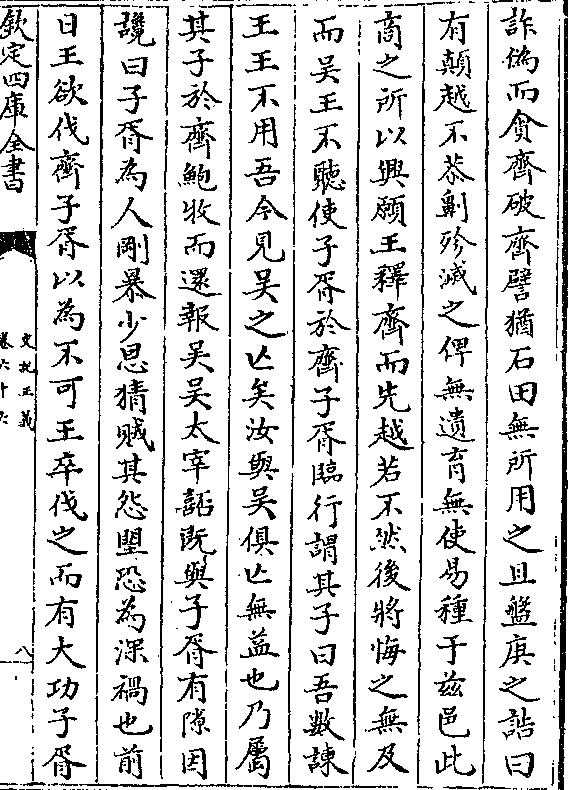 詐偽而貪齊破齊譬猶石田無所用之且盤庚之誥曰
有顛越不恭劓殄滅之俾無遺育無使易種于兹邑此
商之所以興願王釋齊而先越若不然後將悔之無及
而吴王不聽使子胥於齊子胥臨行謂其子曰吾數諫
王王不用吾今見吴之亡矣汝與吴俱亡無益也乃屬
其子於齊鮑牧而還報吴吴太宰嚭既與子胥有隙因
讒曰子胥為人剛暴少恩猜賊其怨朢恐為深禍也前
日王欲伐齊子胥以為不可王卒伐之而有大功子胥
欽定四庫全書
史記正義
卷六十六
八